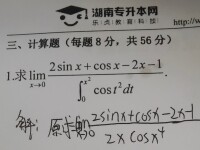 湖南专升本网
乐贞教育科技
http://w
三、计算题(每题 8 分,共 56 分)
1.求 lim x→0 (2 sin x + cos x − 2x − 1) / ∫₀^(x²) cos t² dt .
解: 原式= (2sinx+cosx−2x−1) / (2x cosx⁴)